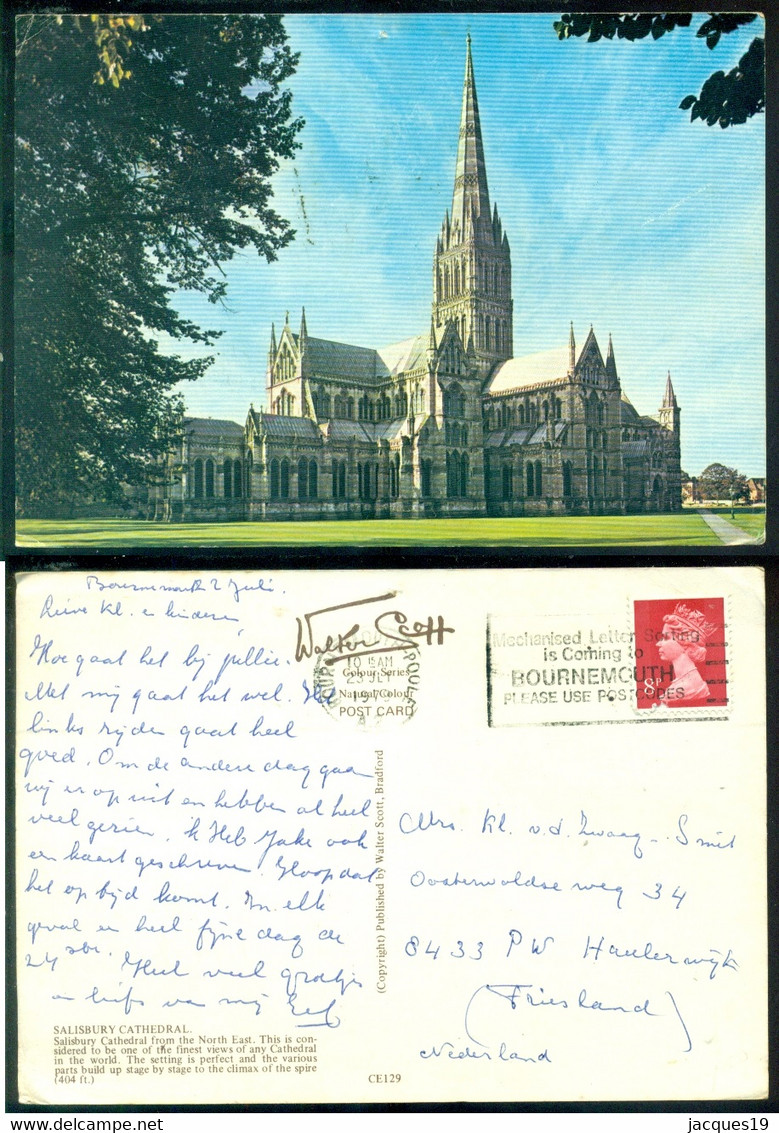 Bournemouth 2 Juli.
Lieve Kl. en kinderen
Hoe gaat het bij jullie.
Met mij gaat het wel. Het
links rijden gaat heel
goed. Om de andere dag gaan
wij er op uit en hebben al heel
veel gezien. ik Heb Jake ook
een kaart geschreven. Hoop dat
het op tijd komt. In elk
geval een heel fijne dag de
24 ste. Heel veel groetjes
en liefs van mij
Walter Scott
Colour Series
Natural Colour
POST CARD
10 15 AM
Mechanised Letter Sorting
is Coming to
BOURNEMOUTH
PLEASE USE POSTCODES
8P
(Copyright) Published by Walter Scott, Bradford
Mrs. Kl. v.d. Zwaag - Smit
Oosterwoldse weg 34
8433 PW Haulerwijk
(Friesland)
Nederland
SALISBURY CATHEDRAL.
Salisbury Cathedral from the North East. This is con-
sidered to be one of the finest views of any Cathedral
in the world. The setting is perfect and the various
parts build up stage by stage to the climax of the spire
(404 ft.)
CE129
jacques19